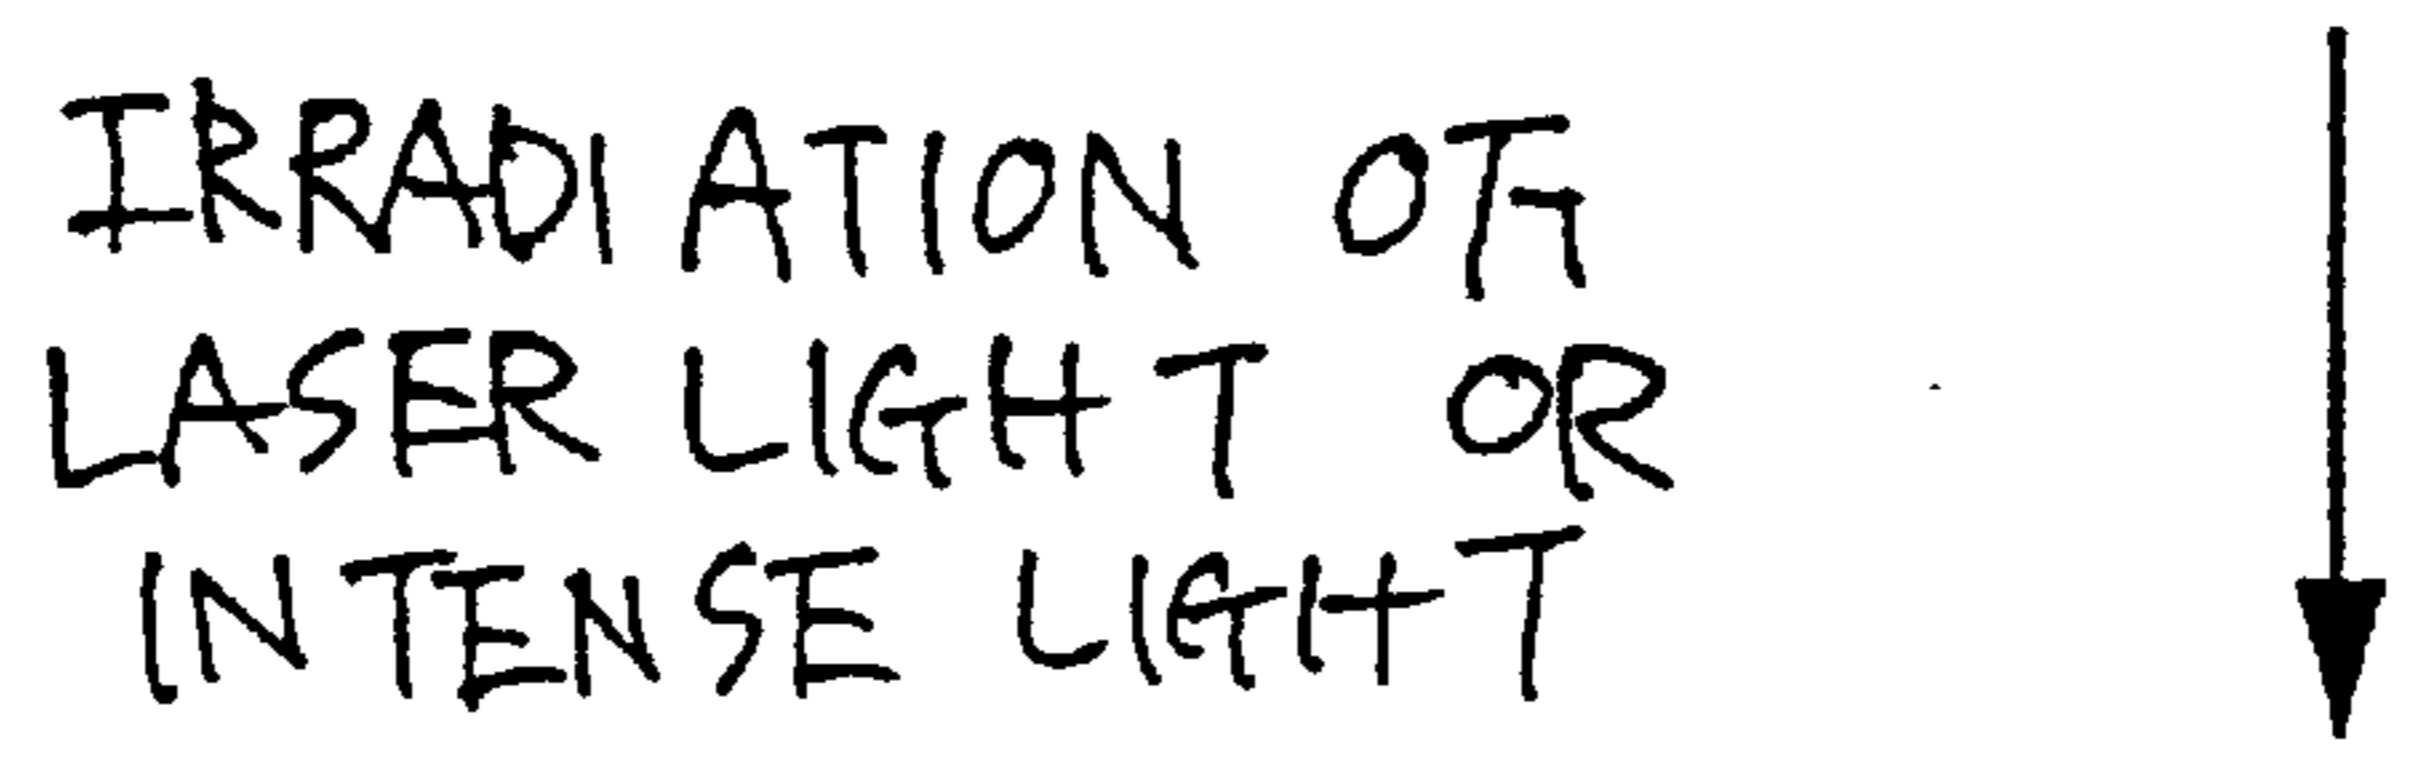 IRRADIATION OF
LASER LIGHT OR
INTENSE LIGHT